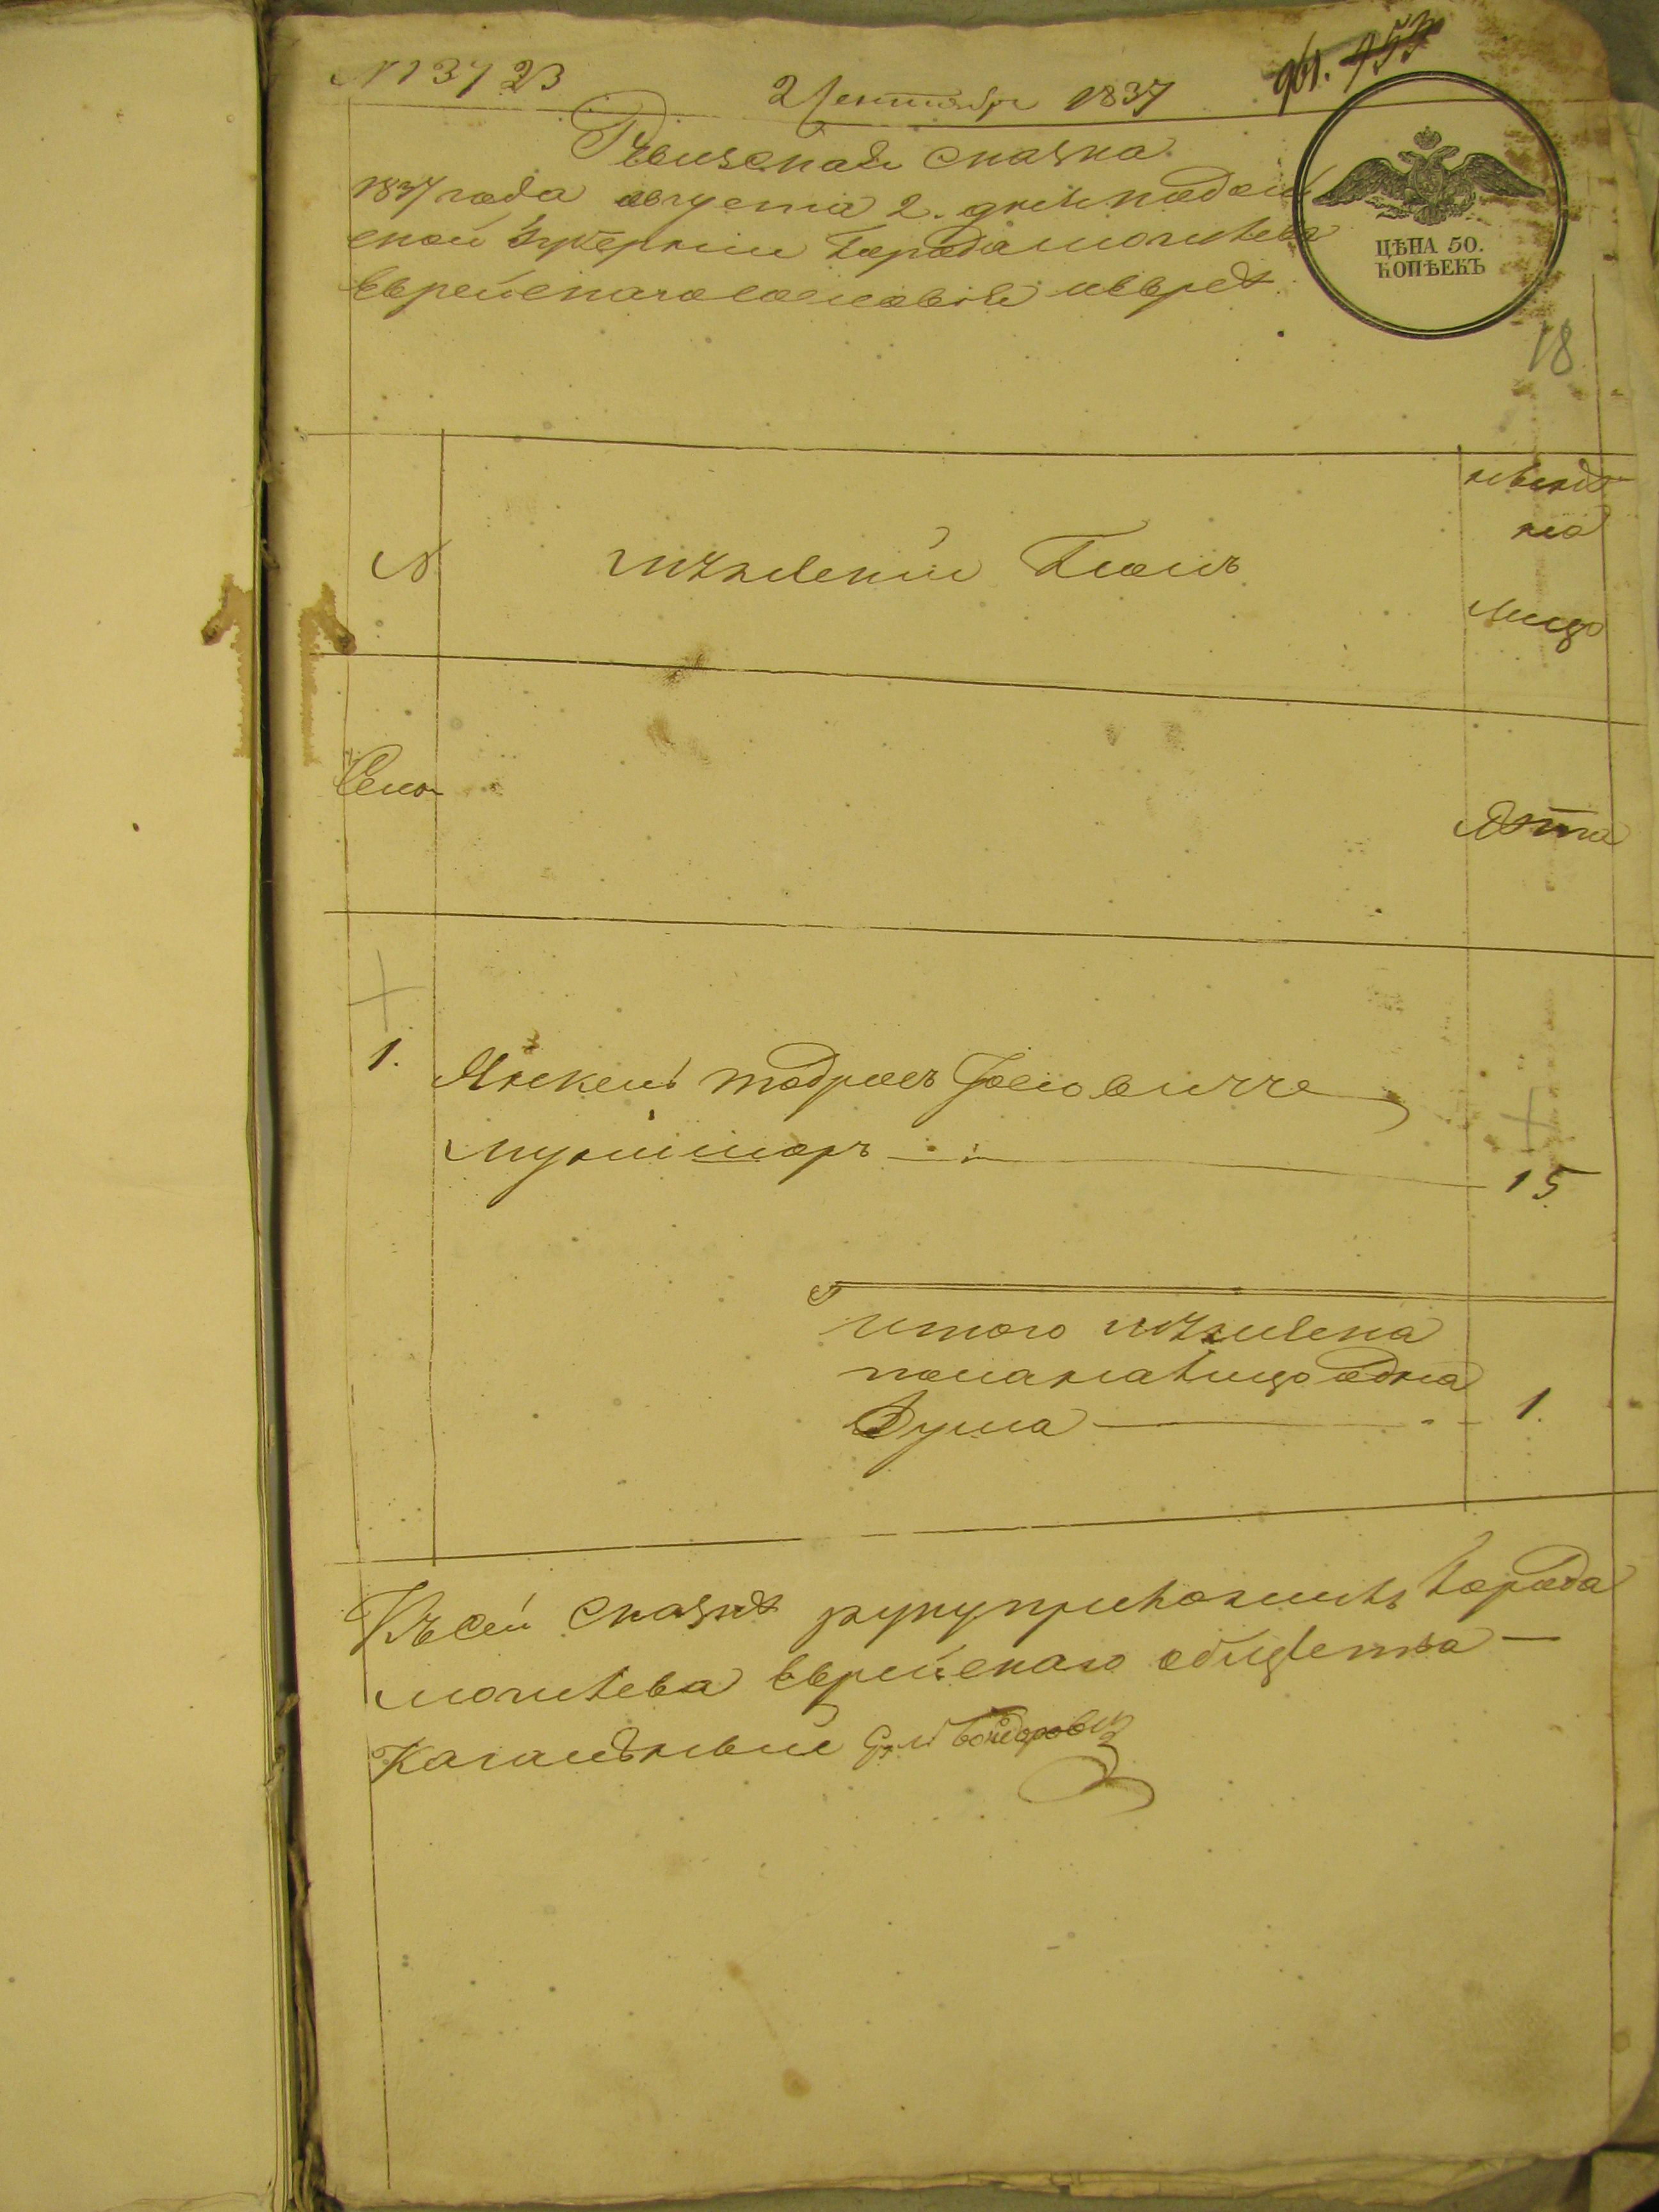 N 13723
2 Сентября 1837
Ревизская сказка
1837 года августа 2. дня подоль
ской губернии города могилева
Еврейскаго сословия
ЦѢНА 50.
КОПѢЕКЪ
18
N
мужеский полъ
ныне
на
лицо
Семи
Лѣта
1.
Янкель Тодресъ Іосіовичъ
15
итого мужеска
пола на лицо одна
Душа
1.
Къ сей сказкѣ руку приложилъ города
могилева Еврейскаго общества
Кагальный